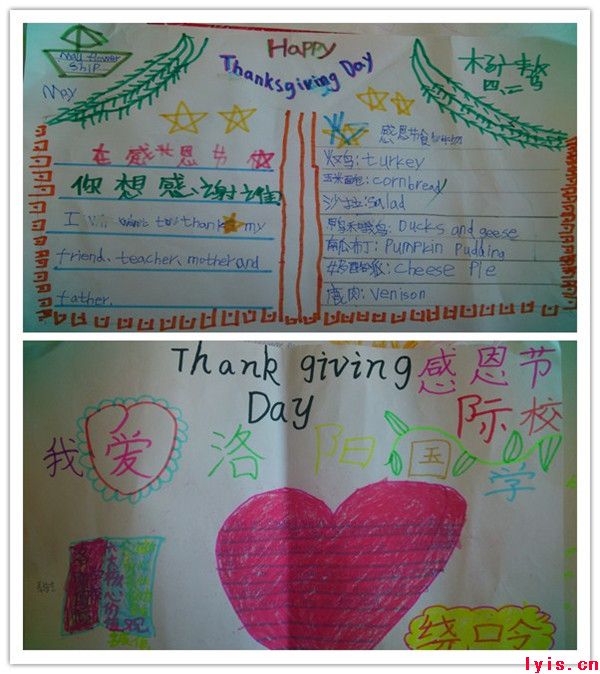 May flower
Ship
May
Happy
Thanksgiving Day
四二
在感恩节
你想感谢谁
I want to thank my
friend, teacher, mother and
father.
感恩节食物
火鸡: turkey
玉米面包: cornbread
沙拉: Salad
鸭和鹅: Ducks and geese
南瓜布丁: Pumpkin Pudding
Cheese Pie
鹿肉: venison
Thank giving
Day
感恩节
我爱洛阳国际学校
绕口令
lyis.cn